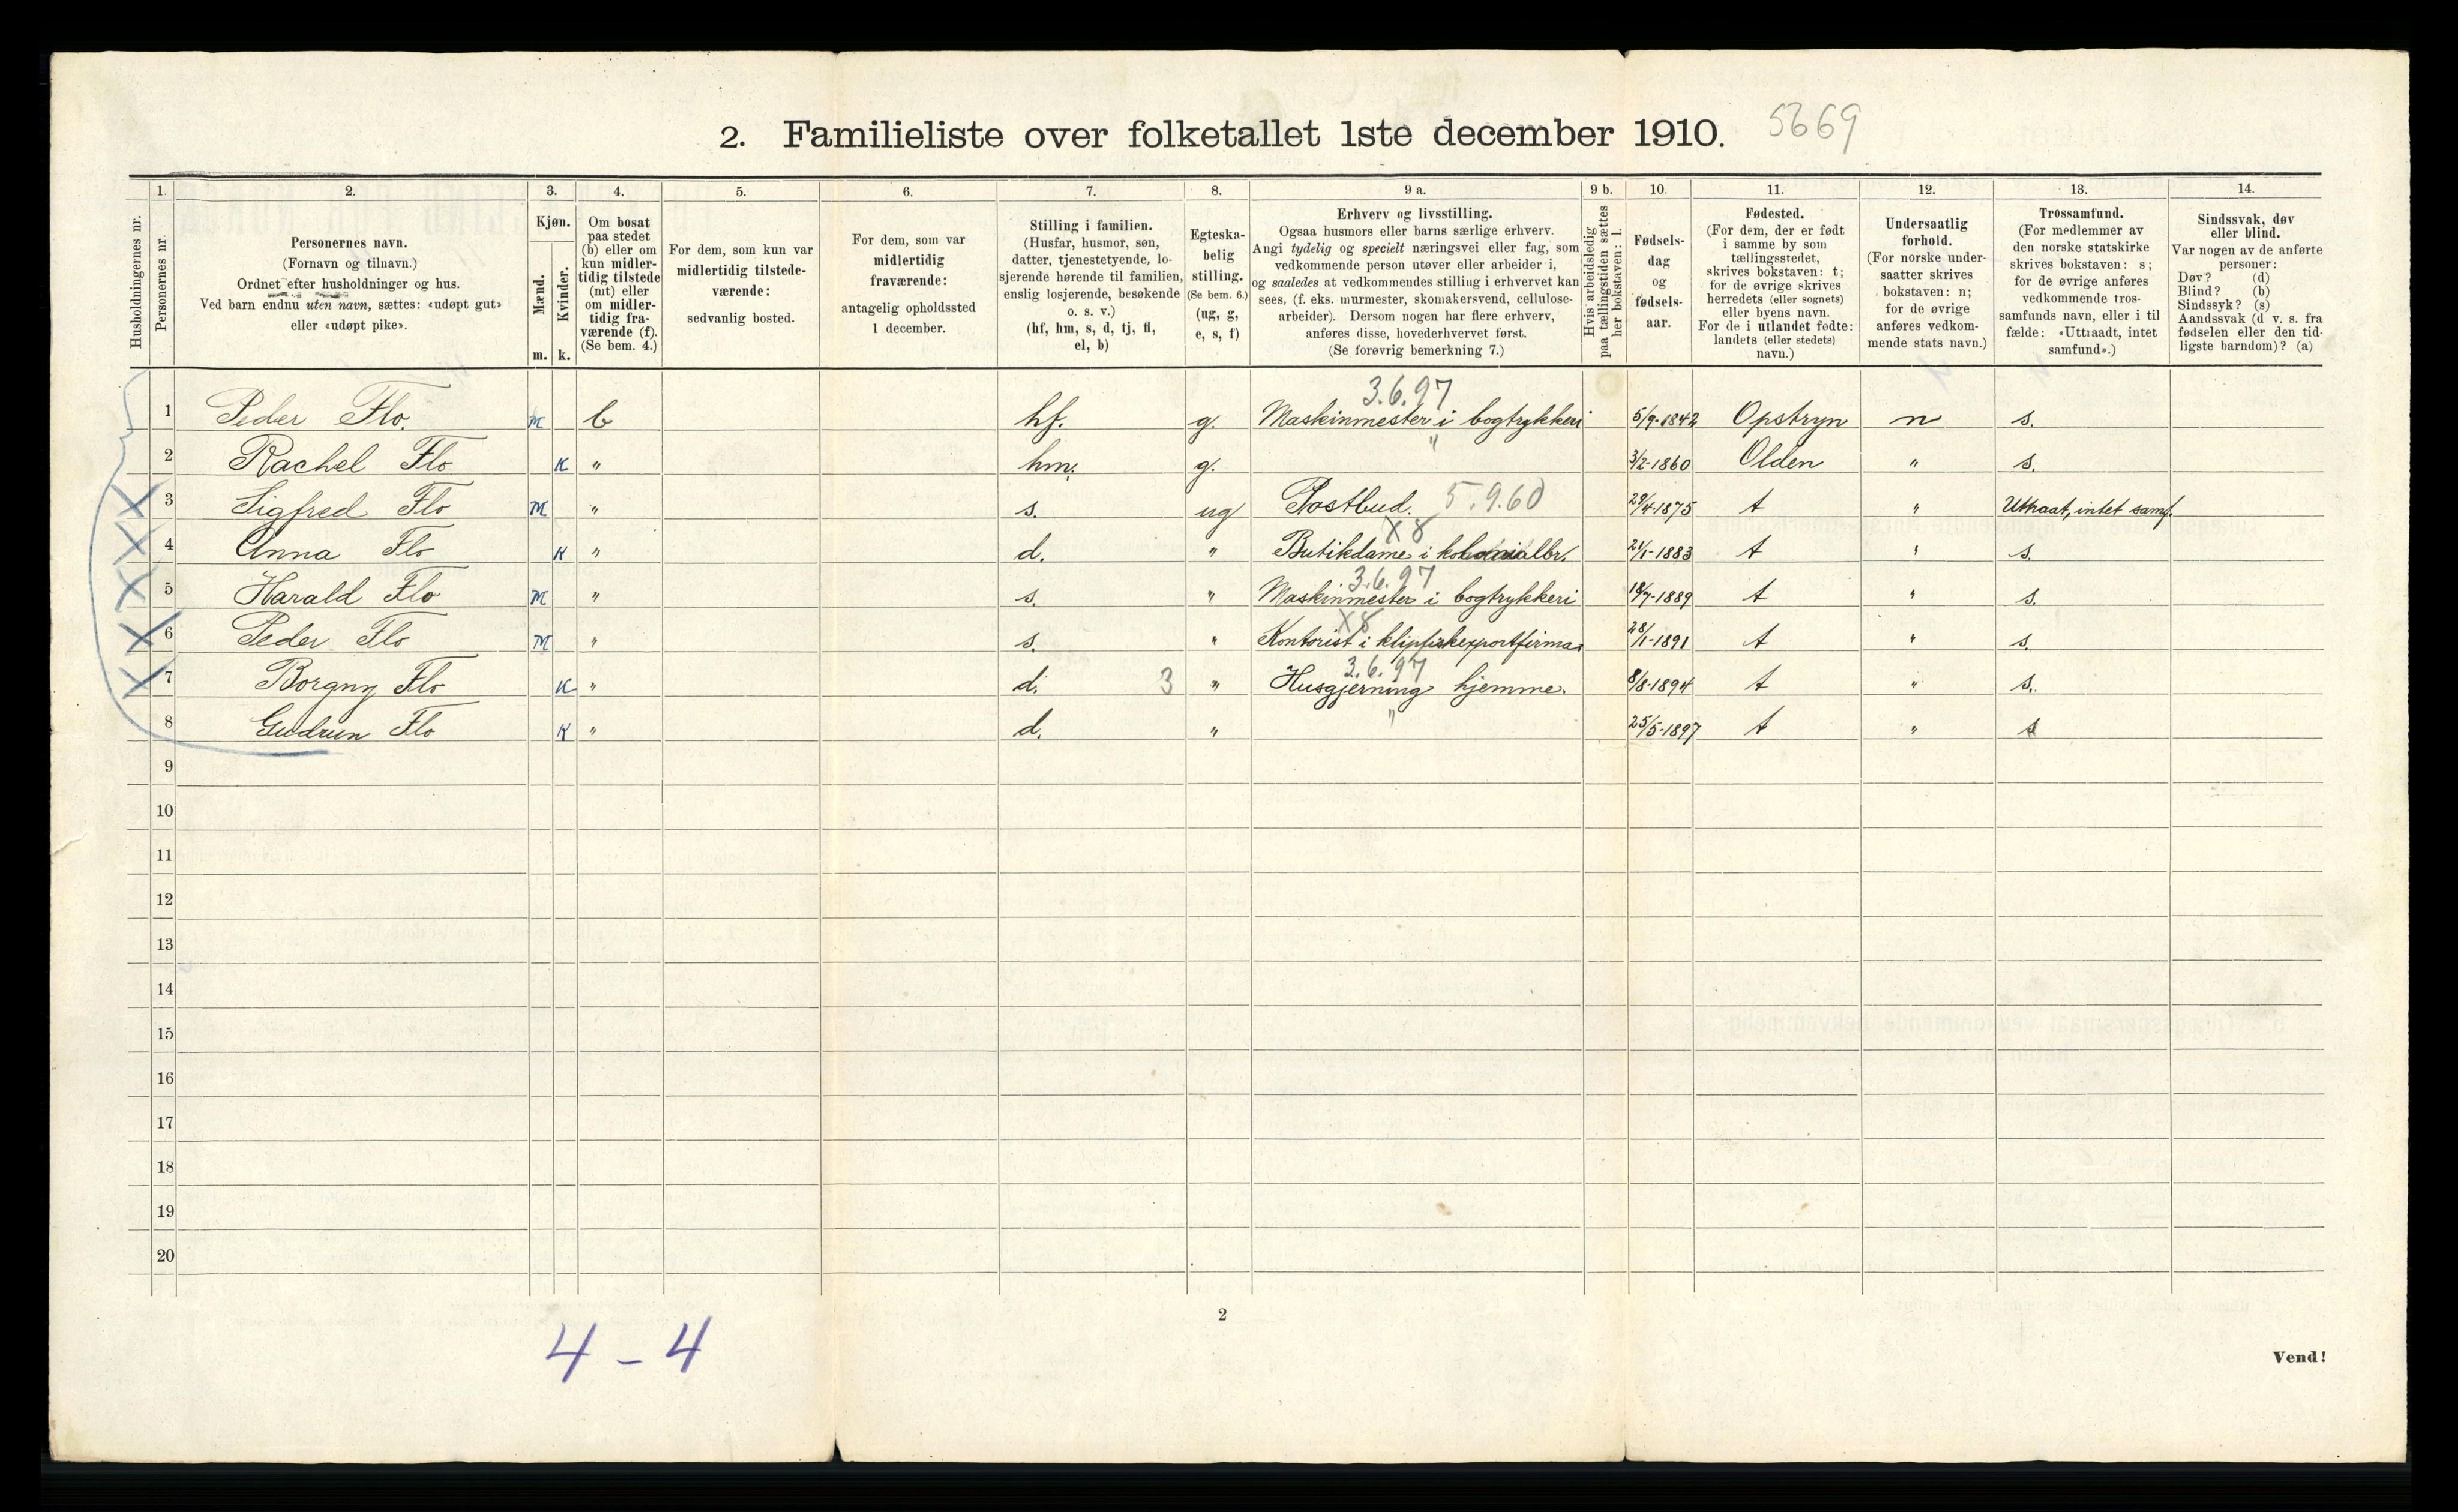 2. Familieliste over folketallet 1ste december 1910. 5669
1. 2. 3. 4. 5. 6. 7. 8. 9 a. 9 b. 10. 11. 12. 13. 14.
Husholdningernes nr.
Personernes nr.
Personernes navn.
(Fornavn og tilnavn.)
Ordnet efter husholdninger og hus.
Ved barn endnu uten navn, sættes: «udøpt gut»
eller «udøpt pike».
Kjøn.
Mænd.
m.
Kvinder.
k.
Om bosat
paa stedet
(b) eller om
kun midler-
tidig tilstede
(mt) eller
om midler-
tidig fra-
værende (f).
(Se bem. 4.)
For dem, som kun var
midlertidig tilstede-
værende:
sedvanlig bosted.
For dem, som var
midlertidig
fraværende:
antagelig opholdssted
1 december.
Stilling i familien.
(Husfar, husmor, søn,
datter, tjenestetyende, lo-
sjerende hørende til familien,
enslig losjerende, besøkende
o. s. v.)
(hf, hm, s, d, tj, fl,
el, b)
Egteska-
belig
stilling.
(Se bem. 6.)
(ug, g,
e, s, f)
Erhverv og livsstilling.
Ogsaa husmors eller barns særlige erhverv.
Angi tydelig og specielt næringsvei eller fag, som
vedkommende person utøver eller arbeider i,
og saaledes at vedkommendes stilling i erhvervet kan
sees, (f. eks. murmester, skomakersvend, cellulose-
arbeider). Dersom nogen har flere erhverv,
anføres disse, hovederhvervet først.
(Se forøvrig bemerkning 7.)
Hvis arbeidsledig
paa tællingstiden sættes
her bokstaven: l.
Fødsels-
dag
og
fødsels-
aar.
Fødested.
(For dem, der er født
i samme by som
tællingsstedet,
skrives bokstaven: t;
for de øvrige skrives
herredets (eller sognets)
eller byens navn.
For de i utlandet fødte:
landets (eller stedets)
navn.)
Undersaatlig
forhold.
(For norske under-
saatter skrives
bokstaven: n;
for de øvrige
anføres vedkom-
mende stats navn.)
Trossamfund.
(For medlemmer av
den norske statskirke
skrives bokstaven: s;
for de øvrige anføres
vedkommende tros-
samfunds navn, eller i til
fælde: «Uttraadt, intet
samfund».)
Sindssvak, døv
eller blind.
Var nogen av de anførte
personer:
Døv? (d)
Blind? (b)
Sindssyk? (s)
Aandssvak (d v. s. fra
fødselen eller den tid-
ligste barndom)? (a)
3.6.97
1 Peder Flo. M b hf. g. Maskinmester i bogtrykkeri 5/9-1842 Opstryn n s.
2 Rachel Flo K " hm. g. " 3/2-1860 Olden " s.
3 Sigfred Flo M " s. ug Postbud. 5.9.60 29/4-1875 t " Uttraat, intet samf.
X8
4 Anna Flo K " d. " Butikdame i kolonialbr. 21/1-1883 t " s.
3.6.97
5 Harald Flo M " s. " Maskinmester i bogtrykkeri 18/7-1889 t " s.
X8
6 Peder Flo M " s. " Kontorist i klipfiskexportfirma 28/1-1891 t " s.
3.6.97
7 Borgny Flo K " d. 3 " Husgjerning hjemme. 8/8-1894 t " s.
8 Gudrun Flo K " d. " " 25/5-1897 t " s
9
10
11
12
13
14
15
16
17
18
19
20
2
4 - 4
Vend!